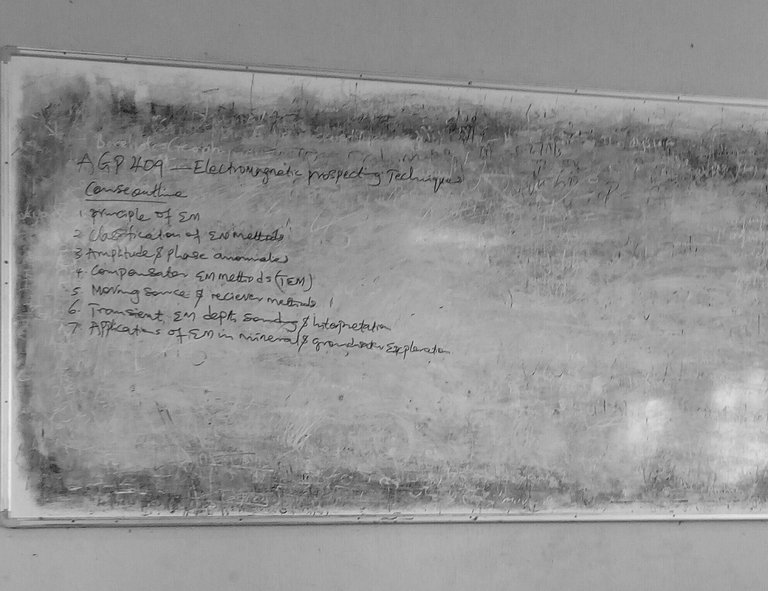 AGP 409 — Electromagnetic prospecting Techniques
Course outline
1 principle of EM
2 Classification of EM methods
3 Amplitude & phase anomalies
4 Compensator EM methods (TEM)
5 Moving source & reciever methods
6 Transient EM depth sounding & Interpretation
7 Applications of EM in mineral & groundwater Exploration